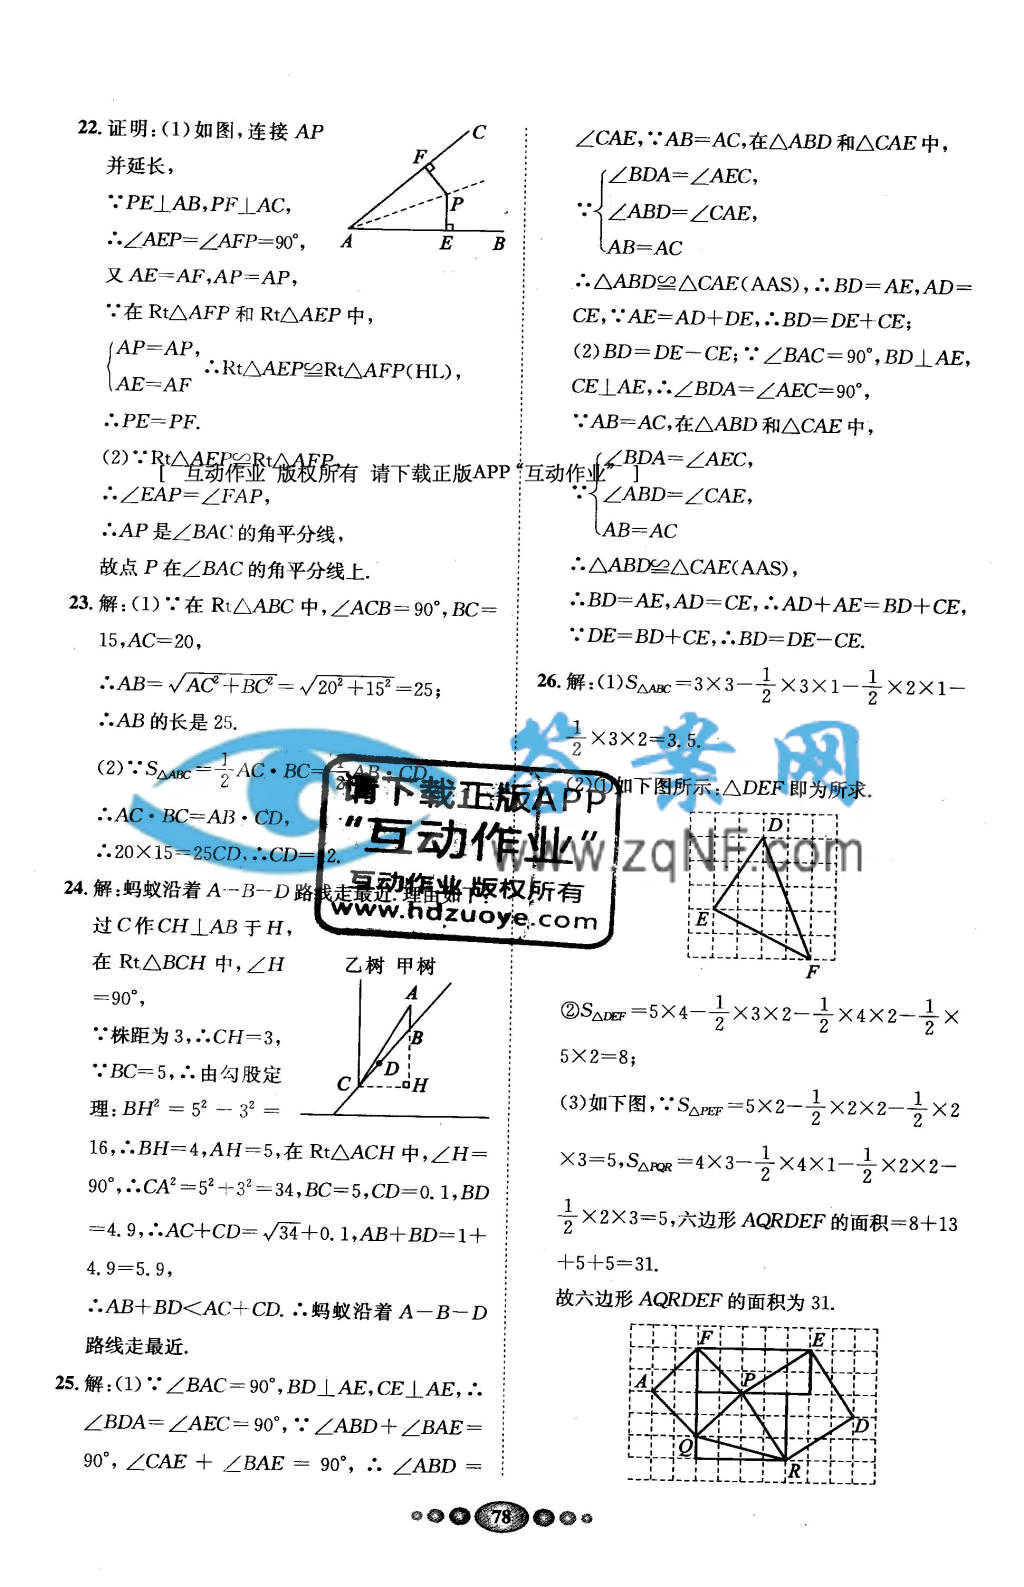 22. 证明:(1)如图,连接 AP
并延长,
∵PE⊥AB,PF⊥AC,
∴∠AEP=∠AFP=90°,
又 AE=AF,AP=AP,
∵在 Rt△AFP 和 Rt△AEP 中,
{AP=AP,
AE=AF ∴Rt△AEP≌Rt△AFP(HL),
∴PE=PF.
(2)∵Rt△AEP≌Rt△AFP
[ 互动作业 版权所有 请下载正版APP“互动作业” ]
∴∠EAP=∠FAP,
∴AP 是∠BAC 的角平分线,
故点 P 在∠BAC 的角平分线上.
C
F
P
A E B
23. 解:(1)∵在 Rt△ABC 中,∠ACB=90°,BC=
15,AC=20,
∴AB=√AC²+BC²=√20²+15²=25;
∴AB 的长是 25.
(2)∵S△ABC=1/2 AC·BC=1/2 AB·CD,
∴AC·BC=AB·CD,
∴20×15=25CD,∴CD=12.
24. 解:蚂蚁沿着 A-B-D 路线走最近.理由如下:
过 C 作 CH⊥AB 于 H,
在 Rt△BCH 中,∠H
=90°,
∵株距为 3,∴CH=3,
∵BC=5,∴由勾股定
理:BH²=5²-3²=
16,∴BH=4,AH=5,在 Rt△ACH 中,∠H=
90°,∴CA²=5²+3²=34,BC=5,CD=0.1,BD
=4.9,∴AC+CD=√34+0.1,AB+BD=1+
4.9=5.9,
∴AB+BD<AC+CD.∴蚂蚁沿着 A-B-D
路线走最近.
乙树 甲树
A
B
D
C H
25. 解:(1)∵∠BAC=90°,BD⊥AE,CE⊥AE,∴
∠BDA=∠AEC=90°,∵∠ABD+∠BAE=
90°,∠CAE+∠BAE=90°,∴∠ABD=
∠CAE,∵AB=AC,在△ABD 和△CAE 中,
∵{∠BDA=∠AEC,
∠ABD=∠CAE,
AB=AC
∴△ABD≌△CAE(AAS),∴BD=AE,AD=
CE,∵AE=AD+DE,∴BD=DE+CE;
(2)BD=DE-CE;∵∠BAC=90°,BD⊥AE,
CE⊥AE,∴∠BDA=∠AEC=90°,
∵AB=AC,在△ABD 和△CAE 中,
∵{∠BDA=∠AEC,
∠ABD=∠CAE,
AB=AC
∴△ABD≌△CAE(AAS),
∴BD=AE,AD=CE,∴AD+AE=BD+CE,
∵DE=BD+CE,∴BD=DE-CE.
26. 解:(1)S△ABC=3×3-1/2×3×1-1/2×2×1-
1/2×3×2=3.5.
(2)①如下图所示:△DEF 即为所求.
D
E
F
②S△DEF=5×4-1/2×3×2-1/2×4×2-1/2×
5×2=8;
(3)如下图,∵S△PEF=5×2-1/2×2×2-1/2×2
×3=5,S△PQR=4×3-1/2×4×1-1/2×2×2-
1/2×2×3=5,六边形 AQRDEF 的面积=8+13
+5+5=31.
故六边形 AQRDEF 的面积为 31.
F E
A P
D
Q R
答案网
www.zqNF.com
请下载正版APP
“互动作业”
互动作业 版权所有
www.hdzuoye.com
78